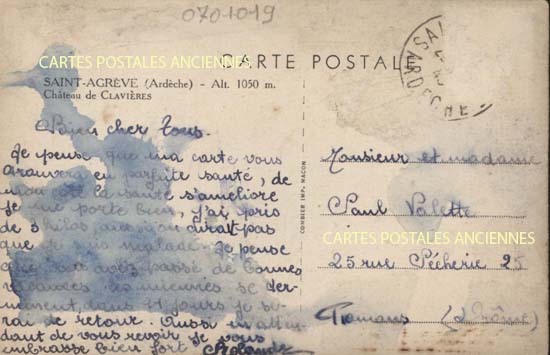 0701019
CARTES POSTALES ANCIENNES
CARTE POSTALE
SAINT-AGRÈVE (Ardèche) - Alt. 1050 m.
Château de CLAVIÈRES
Bien cher Tous.
Je pense que ma carte vous
trouvera en parfaite santé, de
mon côté la santé s'améliore
Je me porte bien, j'ai pris
de 3 kilos on dirait pas
que je suis malade. Je pense
que vous avez passé de bonnes
vacances, les miennes se ter-
minent, dans 11 jours je se-
rai de retour. Aussi en atten-
dant de vous revoir je vous
embrasse bien fort Rolande
COMBIER IMP. MACON
ARDECHE
Monsieur et madame
Paul Valette
CARTES POSTALES ANCIENNES
25 rue Pêcherie 25
Romans (Drôme)